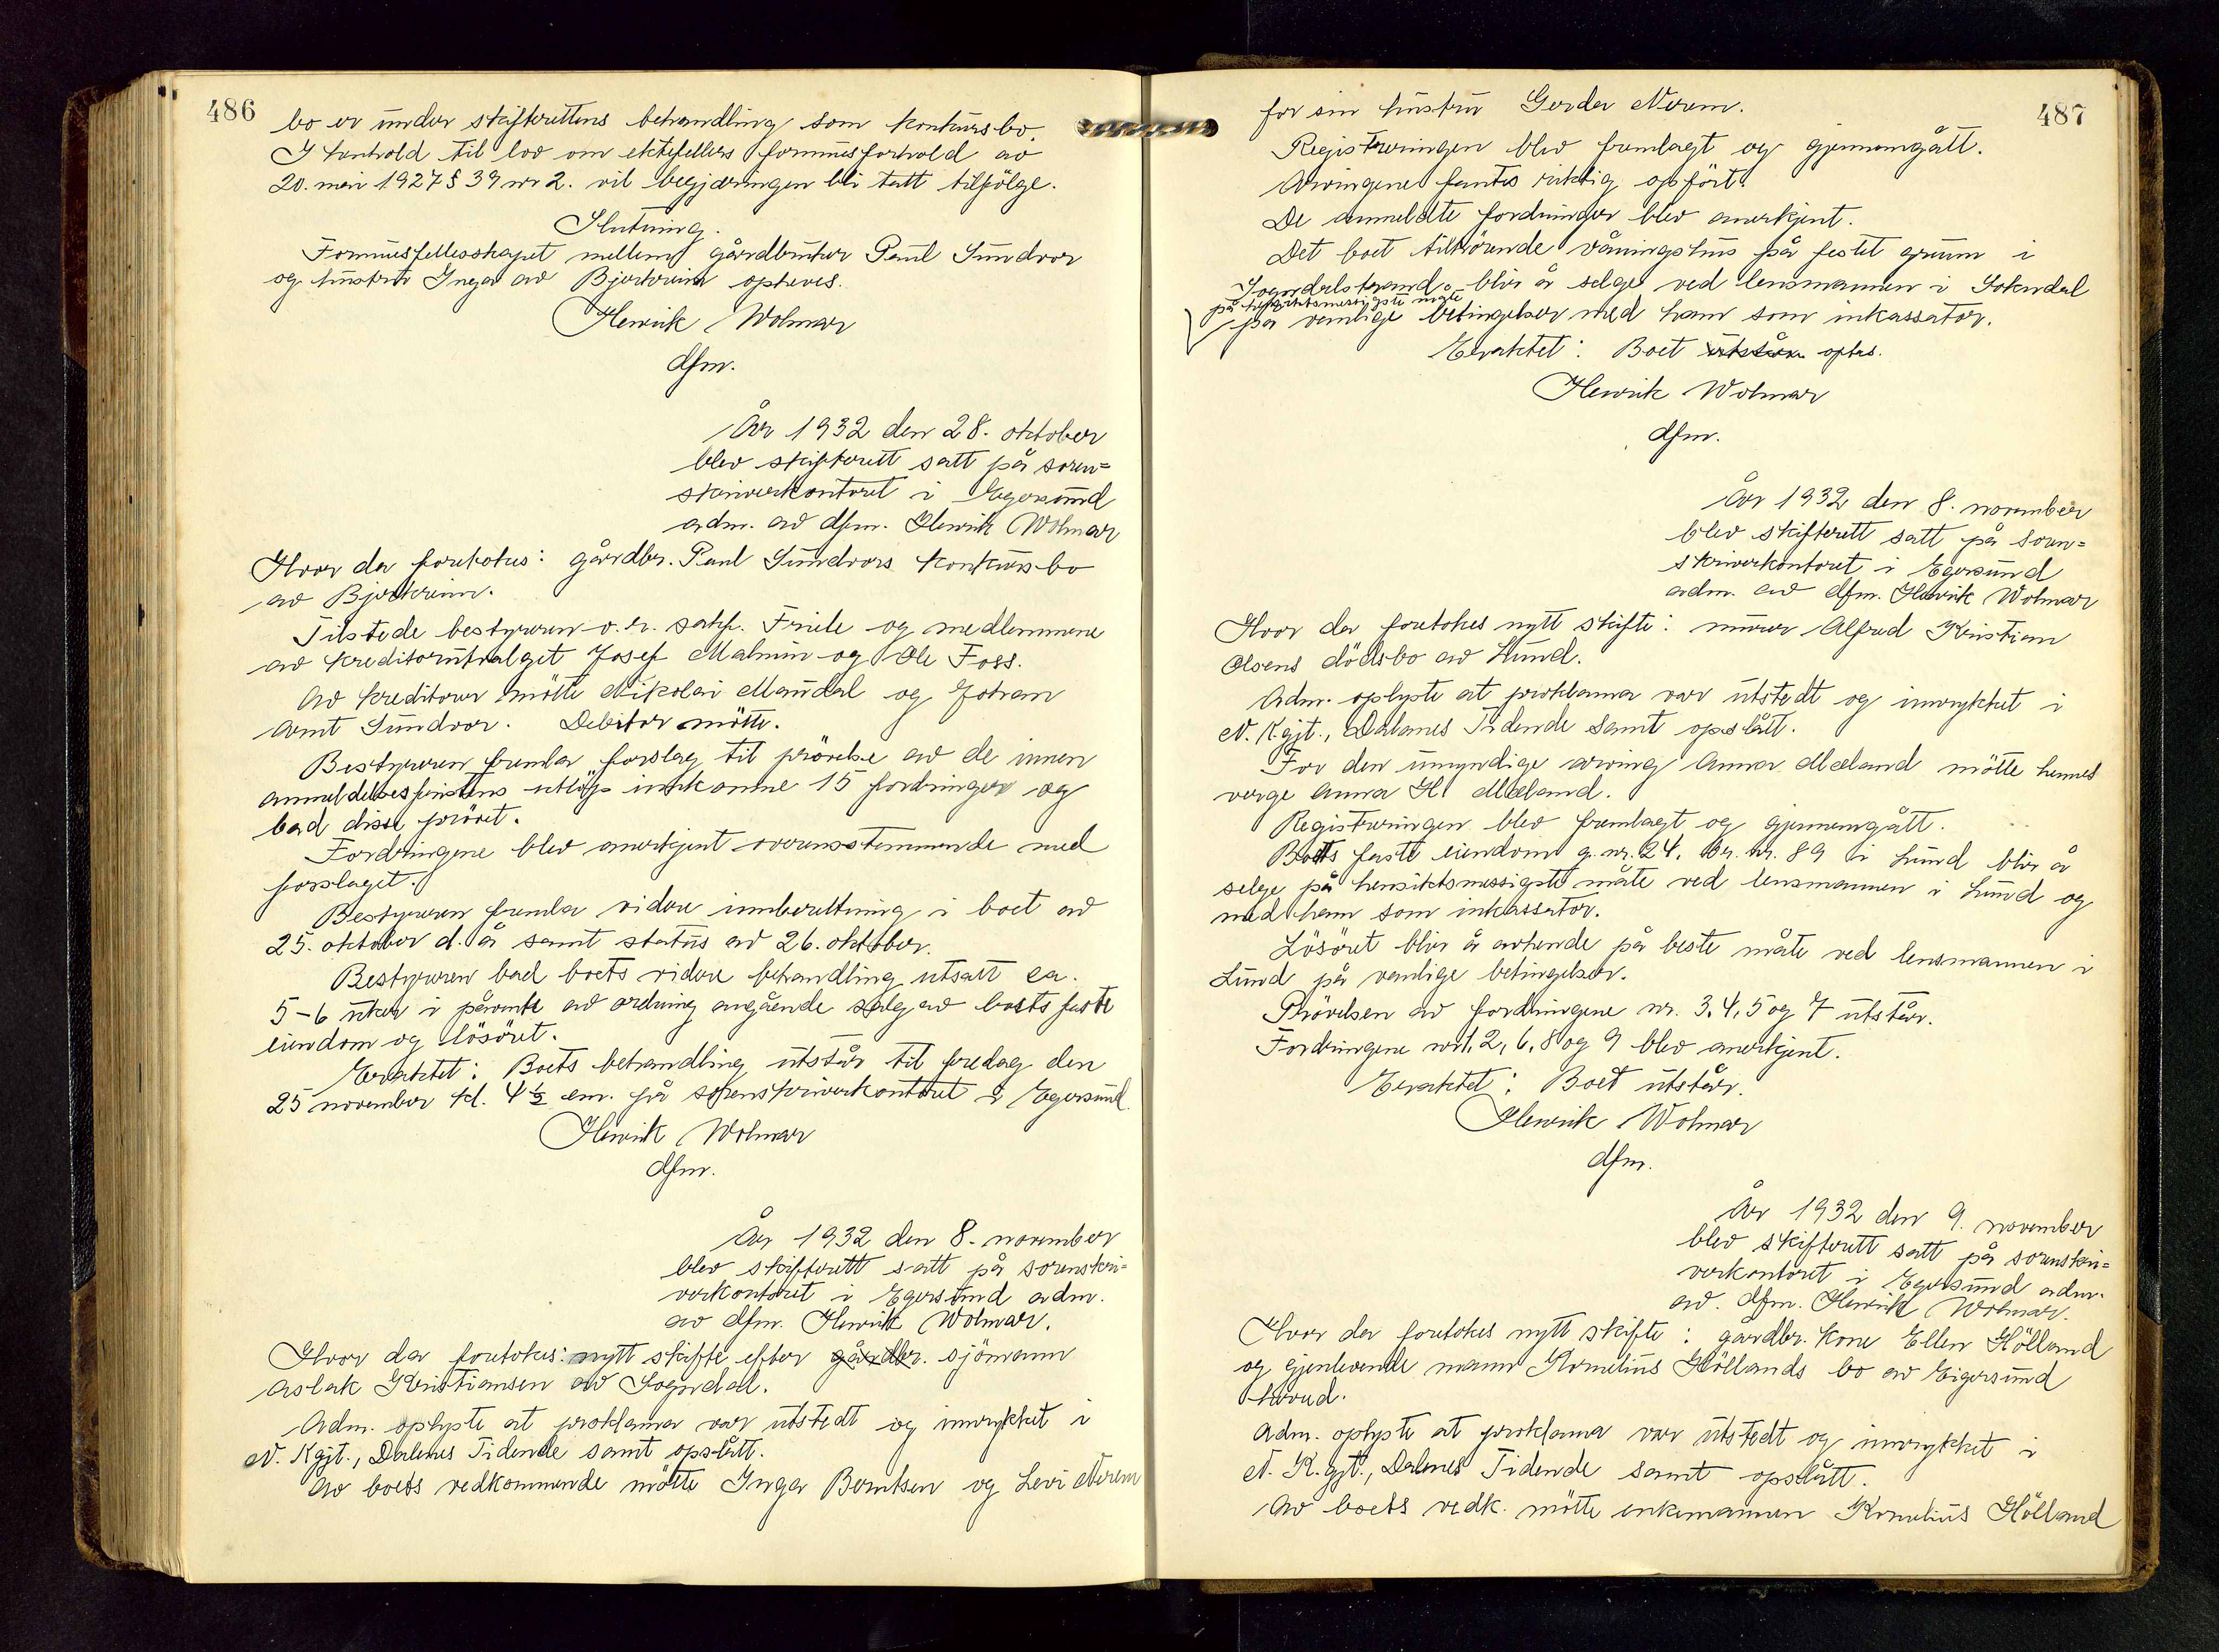 486
bo er under skifterettens behandling som konkursbo.
I henhold til lov om ektefellers formuesforhold av
20. mai 1927 § 39 nr 2. vil begjæringen bli tatt tilfölge.
Slutning.
Formuesfellesskapet mellem gårdbruker Paul Sundvor
og hustru Inga av Bjerkreim opheves.
Henrik Wolmar
dfm.
År 1932 den 28. oktober
blev skifterett satt på soren=
skriverkontoret i Egersund
adm. av dfm. Henrik Wolmar
Hvor da foretokes: gårdbr. Paul Sundvors konkursbo
av Bjerkreim.
Tilstede bestyreren o.r. sakf. Friele og medlemmene
av kreditorutvalget Josef Malmin og Ole Foss.
Av kreditorer mötte Nikolai Maudal og Johan
Arnt Sundvor. Debitor mötte.
Bestyreren fremla forslag til prövelse av de innen
anmeldelsesfristens utlöp innkomne 15 fordringer og
bad disse prövet.
Fordringene blev anerkjent overensstemmende med
forslaget.
Bestyreren fremla videre innberettning i boet av
25. oktober d. å samt status av 26. oktober.
Bestyreren bad boets videre behandling utsatt ca.
5-6 uker i påvente av ordning angående salg av boets faste
eiendom og lösöret.
Eraktet: Boets behandling utstår til fredag den
25 november kl. 4½ em. på sorenskriverkontoret i Egersund.
Henrik Wolmar
dfm.
År 1932 den 8. november
blev skifterett satt på sorenskri=
verkontoret i Egersund adm.
av dfm. Henrik Wolmar.
Hvor da foretokes: nytt skifte efter gårdbr. sjömann
Aslak Kristiansen av Sogndal.
Adm. oplyste at proklama var utstedt og innrykket i
N. Kgjt., Dalenes Tidende samt opslått.
Av boets vedkommende mötte Inga Berntsen og Levi Nerem
487
for sin hustru Gerda Nerem.
Registreringen blev fremlagt og gjennemgått.
Arvingene fantes riktig opfört.
De anmeldte fordringer blev anerkjent.
Det boet tilhörende våningshus på festet grunn i
Sogndalstrand blir å selge ved lensmannen i Sokndal
på hensiktsmessigste måte
på vanlige betingelser med ham som inkassator.
Eraktet: Boet utstår optas.
Henrik Wolmar
dfm.
År 1932 den 8. november
blev skifterett satt på soren=
skriverkontoret i Egersund
adm. av dfm. Henrik Wolmar
Hvor da foretokes nytt skifte: murer Alfred Kristian
Olsens dödsbo av Lund.
Adm. oplyste at proklama var utstedt og innrykket i
N. Kgjt., Dalanes Tidende samt opslått.
For den umyndige arving Anna Mæland mötte hennes
verge Anna H. Mæland.
Registreringen blev fremlagt og gjennemgått.
Boets faste eiendom g.nr. 24, br. nr. 89 i Lund blir å
selge på hensiktsmessigste måte ved lensmannen i Lund og
med ham som inkassator.
Lösöret blir å avhende på beste måte ved lensmannen i
Lund på vanlige betingelser.
Prövelsen av fordringene nr. 3, 4, 5 og 7 utstår.
Fordringene nr 1, 2, 6, 8 og 9 blev anerkjent.
Eraktet: Boet utstår.
Henrik Wolmar
dfm.
År 1932 den 9. november
blev skifterett satt på sorenskri=
verkontoret i Egersund adm.
av. dfm. Henrik Wolmar.
Hvor da foretokes nytt skifte: gårdbr. kone Ellen Hölland
og gjenlevende mann Kornelius Höllands bo av Eigersund
herred.
Adm. oplyste at proklama var utstedt og innrykket i
N. K.gjt., Dalenes Tidende samt opslått.
Av boets vedk. mötte enkemannen Kornelius Hölland